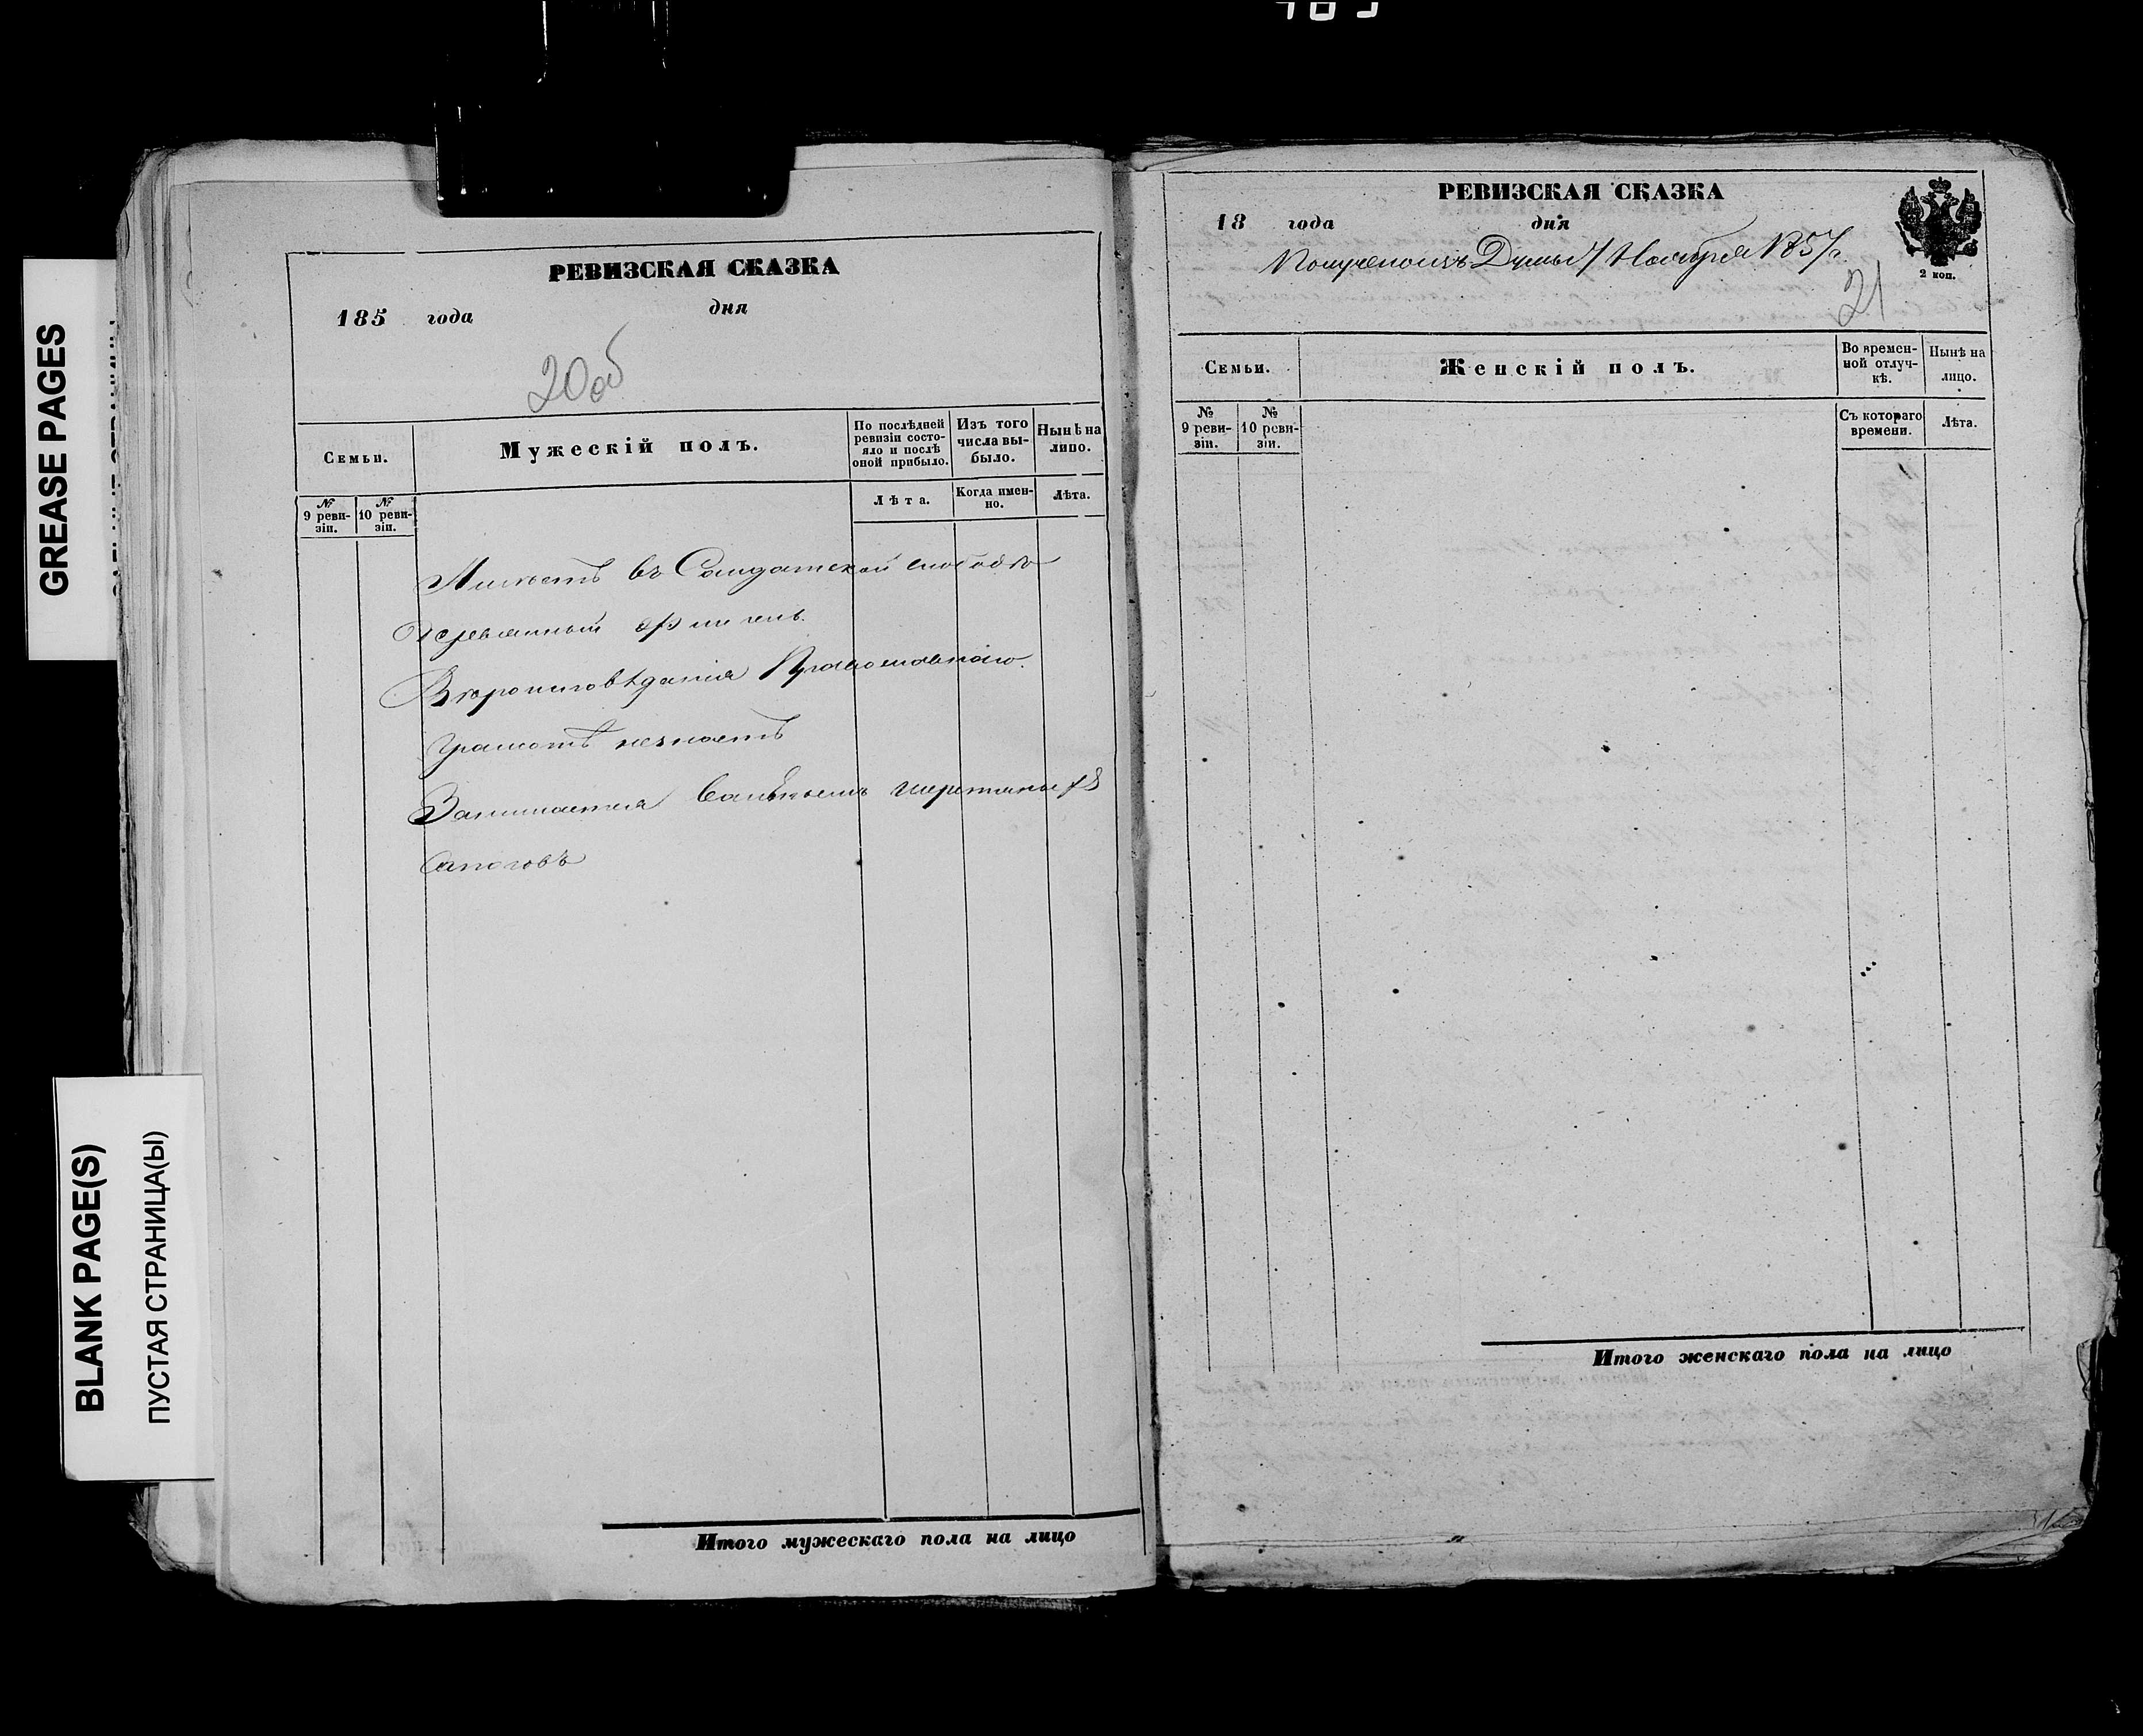 GREASE PAGES
BLANK PAGE(S)
ПУСТАЯ СТРАНИЦА(Ы)
РЕВИЗСКАЯ СКАЗКА
185 года дня
20об
Семьи.
Мужескій полъ.
По послѣдней ревизіи состояло и послѣ оной прибыло.
Изъ того числа выбыло.
Нынѣ на лицо.
№ 9 ревизіи.
№ 10 ревизіи.
Лѣта.
Когда именно.
Лѣта.
Имѣетъ въ Солдатской слободѣ
Деревянный флигель.
Вѣроисповѣданія Православнаго.
Грамотѣ незнаетъ
Занимается
Сапоговъ
Итого мужескаго пола на лицо
РЕВИЗСКАЯ СКАЗКА
18 года дня
Думы 7 Ноября 1857 г.
2 коп.
21
Семьи.
Женскій полъ.
Во временной отлучкѣ.
Нынѣ на лицо.
№ 9 ревизіи.
№ 10 ревизіи.
Съ котораго времени.
Лѣта.
Итого женскаго пола на лицо